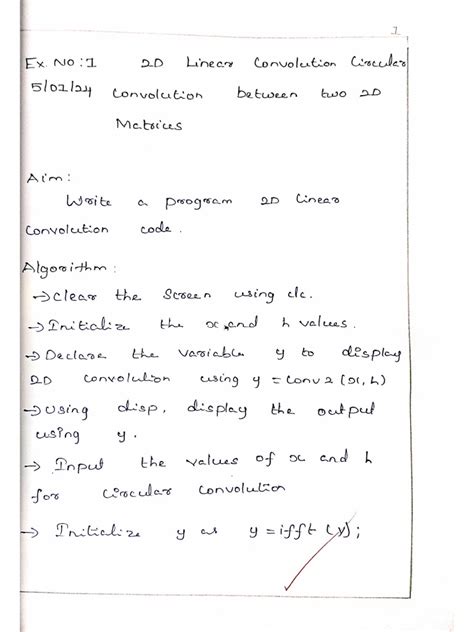 1
Ex. No : 1 2D Linear Convolution Circular
5/01/24 Convolution between two 2D
Matrices
Aim :
Write a program 2D Linear
Convolution code.
Algorithm :
→ Clear the Screen using clc.
→ Initialize the x and h values.
→ Declare the variable y to display
2D convolution using y = conv2 (x, h)
→ Using disp, display the output
using y.
→ Input the values of x and h
for circular convolution
→ Initialize y as y = ifft (y);